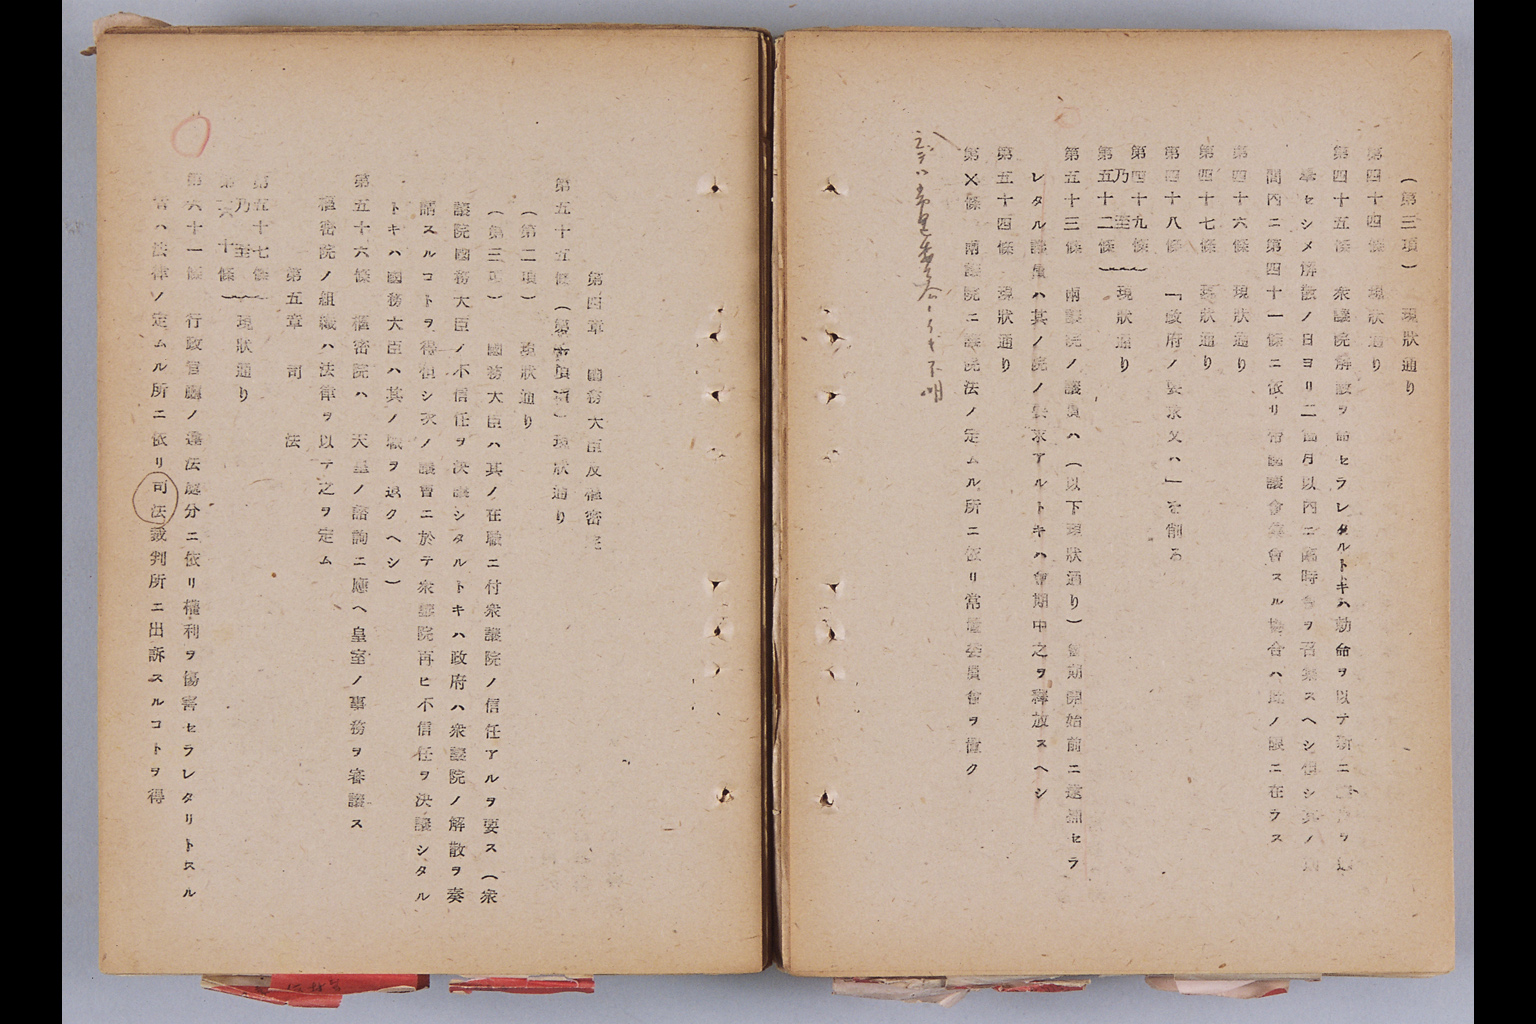 (第三項) 現狀通り
第四十四條 現狀通り
第四十五條 衆議院解散ヲ命セラレタルトキハ勅命ヲ以テ新ニ議員ヲ選
擧セシメ解散ノ日ヨリ二箇月以內ニ臨時會ヲ召集スヘシ但シ其ノ期
間內ニ第四十一條ニ依リ常國議會集會スル場合ハ此ノ限ニ在ラス
第四十六條 現狀通り
第四十七條 現狀通り
第四十八條 「政府ノ要求又ハ」を削る
第四十九條
乃至 現狀通り
第五十二條
第五十三條 兩議院ノ議員ハ (以下現狀通り) 會期開始前ニ逮捕セラ
レタル議員ハ其ノ院ノ要求アルトキハ會期中之ヲ釋放スヘシ
第五十四條 現狀通り
第×條 兩議院ニ議院法ノ定ムル所ニ依リ常置委員會ヲ置ク
不明
第四章 國務大臣及樞密院
第五十五條 (第一項) 現狀通り
(第二項) 現狀通り
(第三項) 國務大臣ハ其ノ在職ニ付衆議院ノ信任アルヲ要ス (衆
議院國務大臣ノ不信任ヲ決議シタルトキハ政府ハ衆議院ノ解散ヲ奏
請スルコトヲ得但シ次ノ議會ニ於テ衆議院再ヒ不信任ヲ決議シタル
トキハ國務大臣ハ其ノ職ヲ退クヘシ)
第五十六條 樞密院ハ 天皇ノ諮詢ニ應ヘ皇室ノ事務ヲ審議ス
樞密院ノ組織ハ法律ヲ以テ之ヲ定ム
第五章 司 法
第五十七條
乃至 現狀通り
第六十條
第六十一條 行政官廳ノ違法處分ニ依リ權利ヲ傷害セラレタリトスル
者ハ法律ノ定ムル所ニ依リ司法裁判所ニ出訴スルコトヲ得